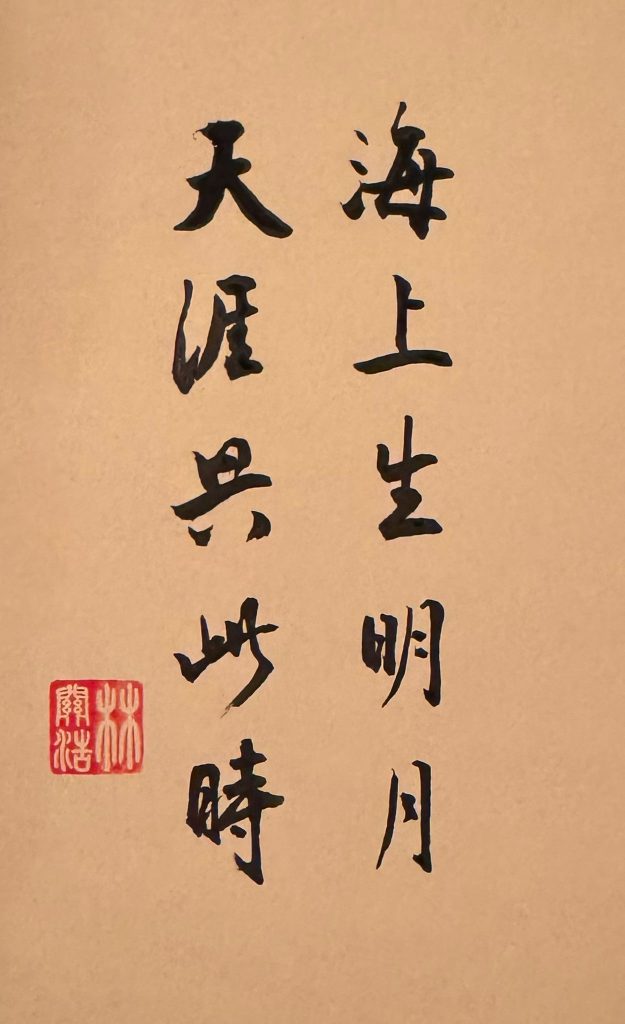 海上生明月
天涯共此時
林
關浩